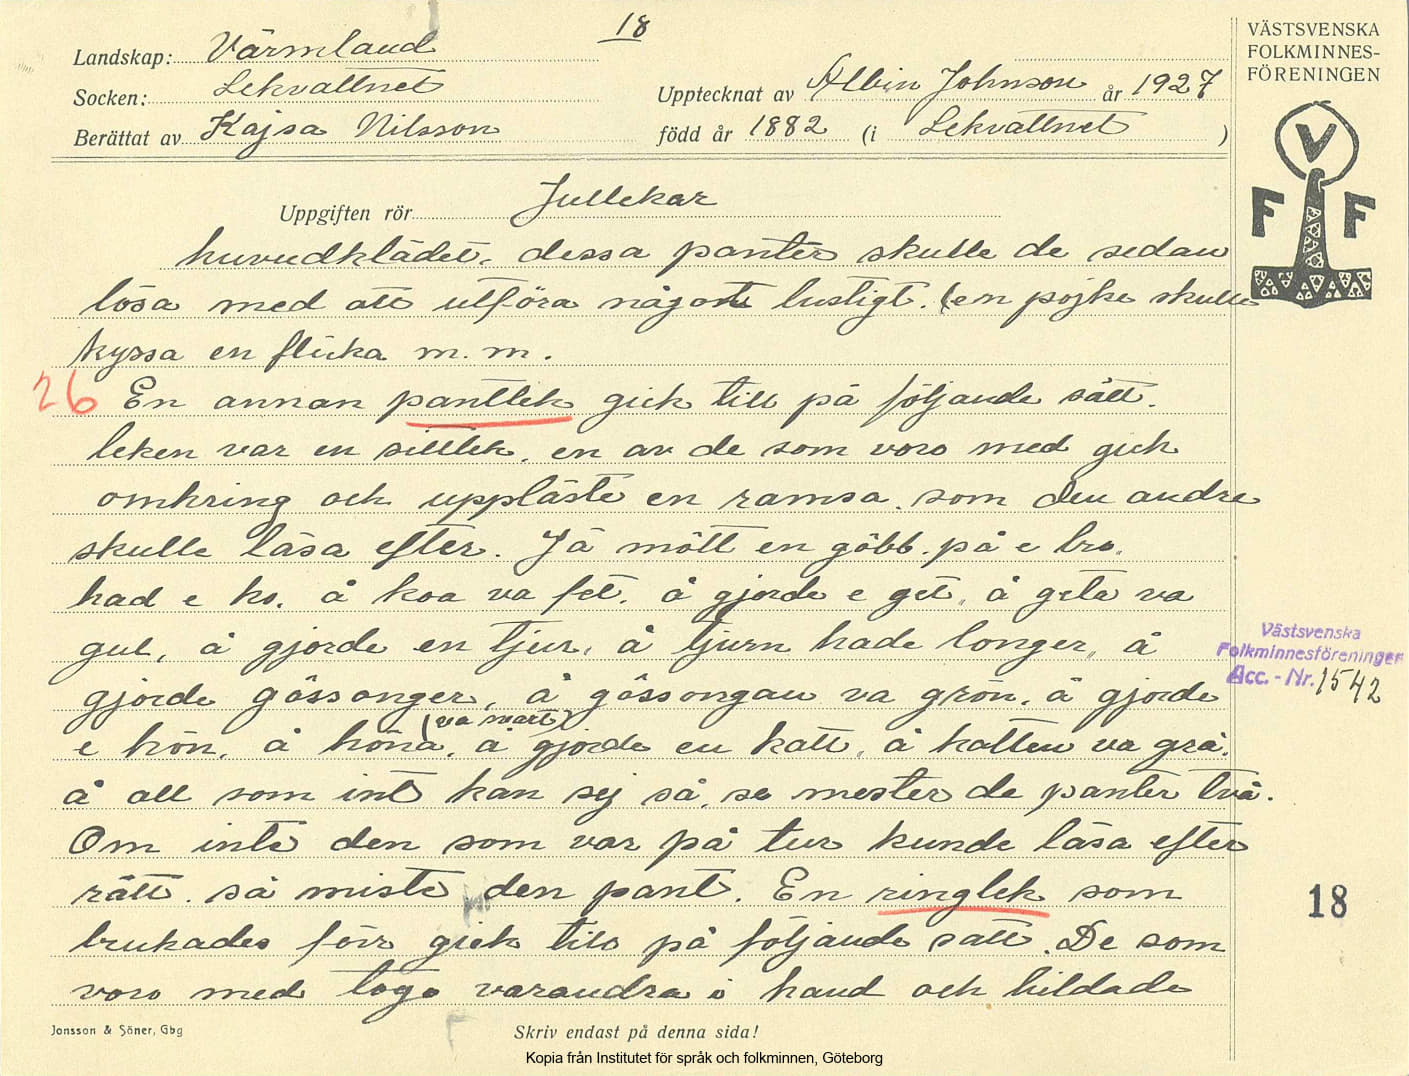 18
Landskap: Värmland
Socken: Lekvattnet
Berättat av Kajsa Nilsson
Upptecknat av Albin Johnson år 1927
född år 1882 (i Lekvattnet )
VÄSTSVENSKA
FOLKMINNES-
FÖRENINGEN
V
F F
Uppgiften rör Jullekar
huvudklädet, dessa panter skulle de sedan
lösa med att utföra något lustigt. (en pojke skulle
kyssa en flicka m. m.
26 En annan pantlek gick till på följande sätt.
leken var en sittlek, en av de som voro med gick
omkring och uppläste en ramsa, som den andre
skulle läsa efter. Jä mött en göbb, på e bro,
had e ko, å koa va fet, å gjorde e get, å geta va
gul, å gjorde en tjur, å tjurn hade longer, å
gjorde gåssonger, å gåssongan va grön, å gjorde
e hön, å höna (va svart), å gjorde en katt, å katten va grå,
å all som int kan sej så, se mester de panter två.
Om inte den som var på tur kunde läsa efter
rätt, så miste den pant. En ringlek som
brukades förr gick till på följande sätt. De som
voro med togo varandra i hand och bildade
Västsvenska
Folkminnesföreningen
Acc. - Nr. 1542
18
Jonsson & Söner, Gbg
Skriv endast på denna sida!
Kopia från Institutet för språk och folkminnen, Göteborg